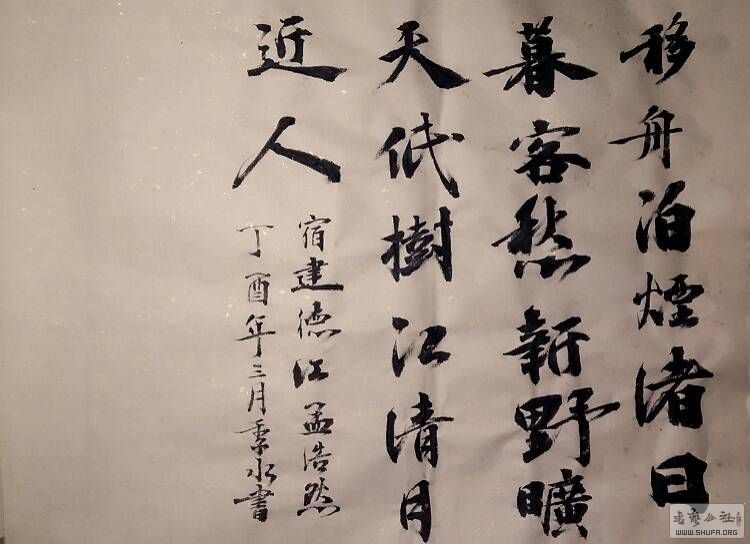 移舟泊煙渚日
暮客愁新野曠
天低樹江清月
近人
宿建德江孟浩然
丁酉年三月秉水書
WWW.SHUFA.ORG